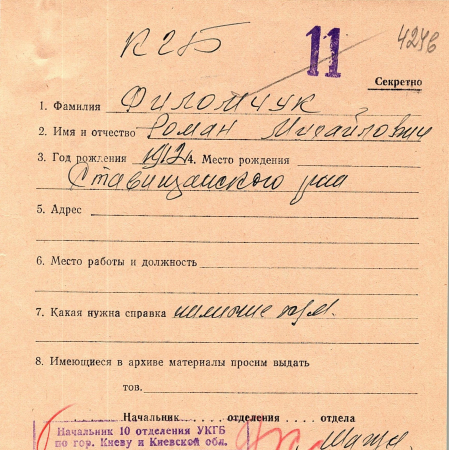 К2Б 11 424б
Секретно
1. Фамилия Филомчук
2. Имя и отчество Роман Михайлович
3. Год рождения 1912 4. Место рождения
Ставищанского р-на
5. Адрес
6. Место работы и должность
7. Какая нужна справка
8. Имеющиеся в архиве материалы просим выдать
тов.
Начальник ..... отделения .... отдела
Начальник 10 отделения УКГБ
по гор. Киеву и Киевской обл.